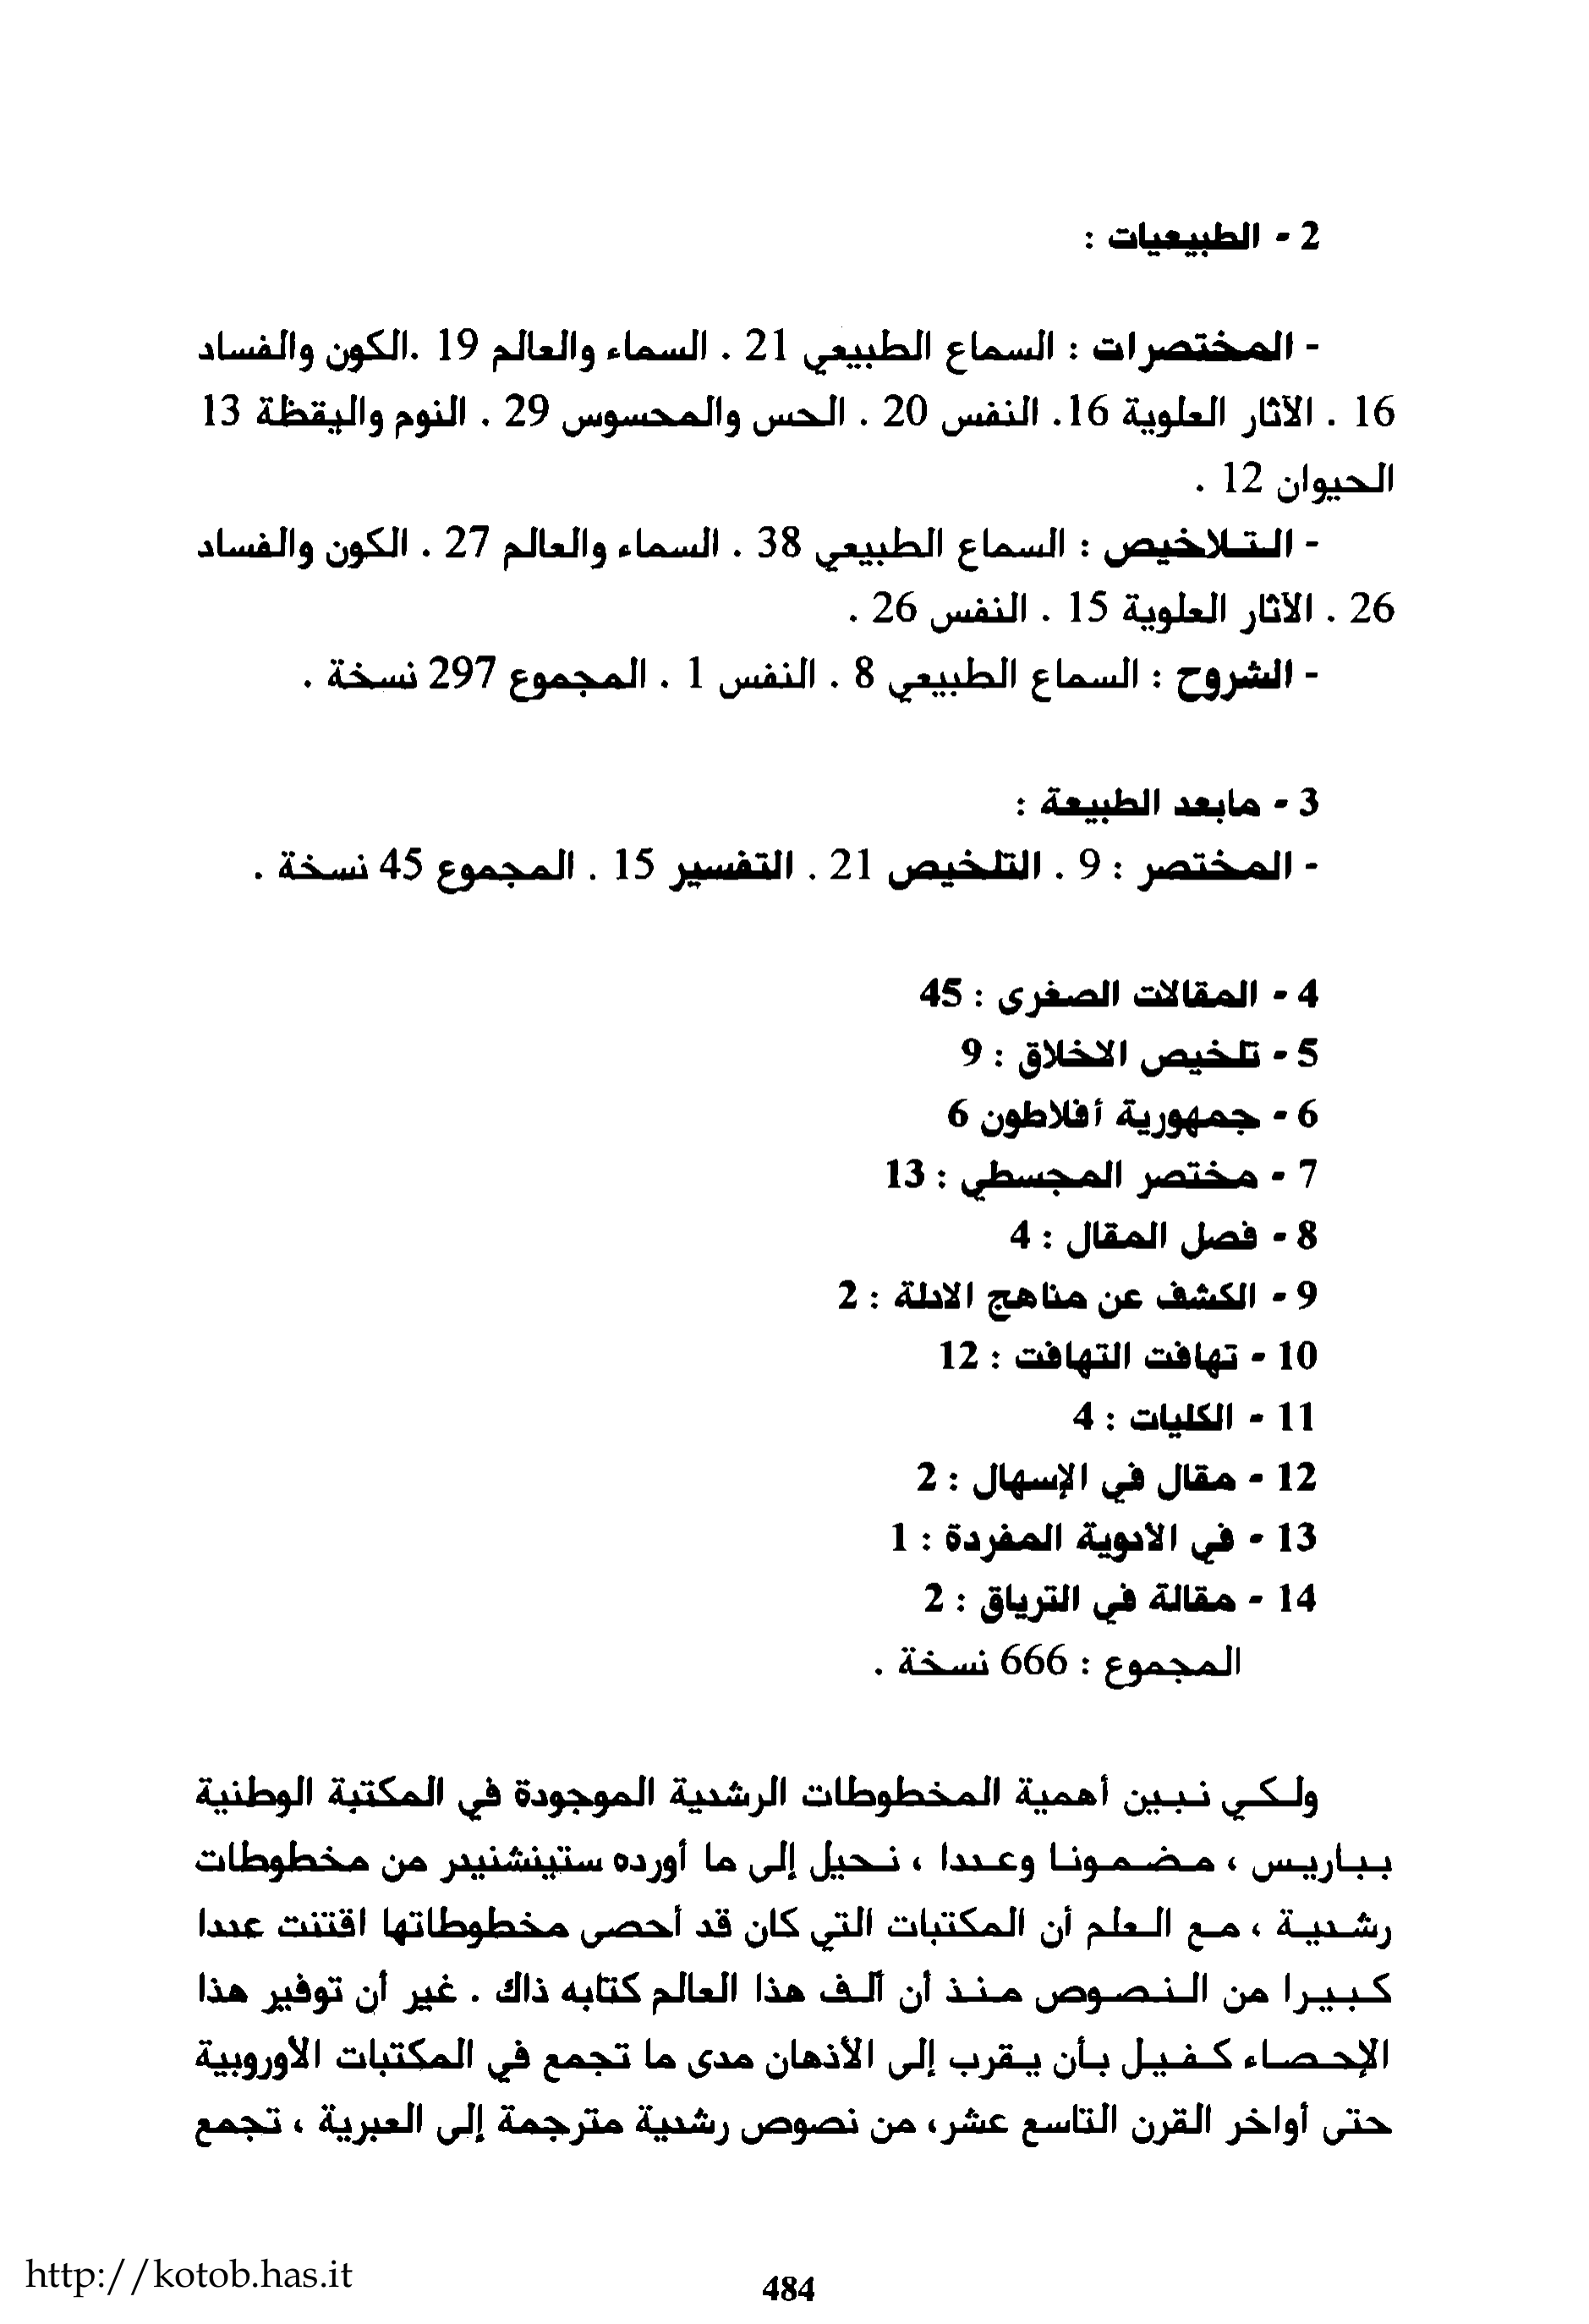 2 - الطبيعيات :
- المختصرات : السماع الطبيعي 21 . السماء والعالم 19 .الكون والفساد
16 . الآثار العلوية 16. النفس 20 . الحس والمحسوس 29 . النوم واليقظة 13
الحيوان 12 .
- التلاخيص : السماع الطبيعي 38 . السماء والعالم 27 . الكون والفساد
26 . الآثار العلوية 15 . النفس 26 .
- الشروح : السماع الطبيعي 8 . النفس 1 . المجموع 297 نسخة .
3 - مابعد الطبيعة :
- المختصر : 9 . التلخيص 21 . التفسير 15 . المجموع 45 نسخة .
4 - المقالات الصغرى : 45
5 - تلخيص الاخلاق : 9
6 - جمهورية أفلاطون 6
7 - مختصر المجسطي : 13
8 - فصل المقال : 4
9 - الكشف عن مناهج الادلة : 2
10 - تهافت التهافت : 12
11 - الكليات : 4
12 - مقال في الإسهال : 2
13 - في الأدوية المفردة : 1
14 - مقالة في الترياق : 2
المجموع : 666 نسخة .
ولكي نبين أهمية المخطوطات الرشدية الموجودة في المكتبة الوطنية
بباريس ، مضمونا وعددا ، نحيل إلى ما أورده ستينشنيدر من مخطوطات
رشدية ، مع العلم أن المكتبات التي كان قد أحصى مخطوطاتها اقتنت عددا
كبيرا من النصوص منذ أن ألف هذا العالم كتابه ذاك . غير أن توفير هذا
الإحصاء كفيل بأن يقرب إلى الأذهان مدى ما تجمع في المكتبات الأوروبية
حتى أواخر القرن التاسع عشر، من نصوص رشدية مترجمة إلى العبرية ، تجمع
http://kotob.has.it
484